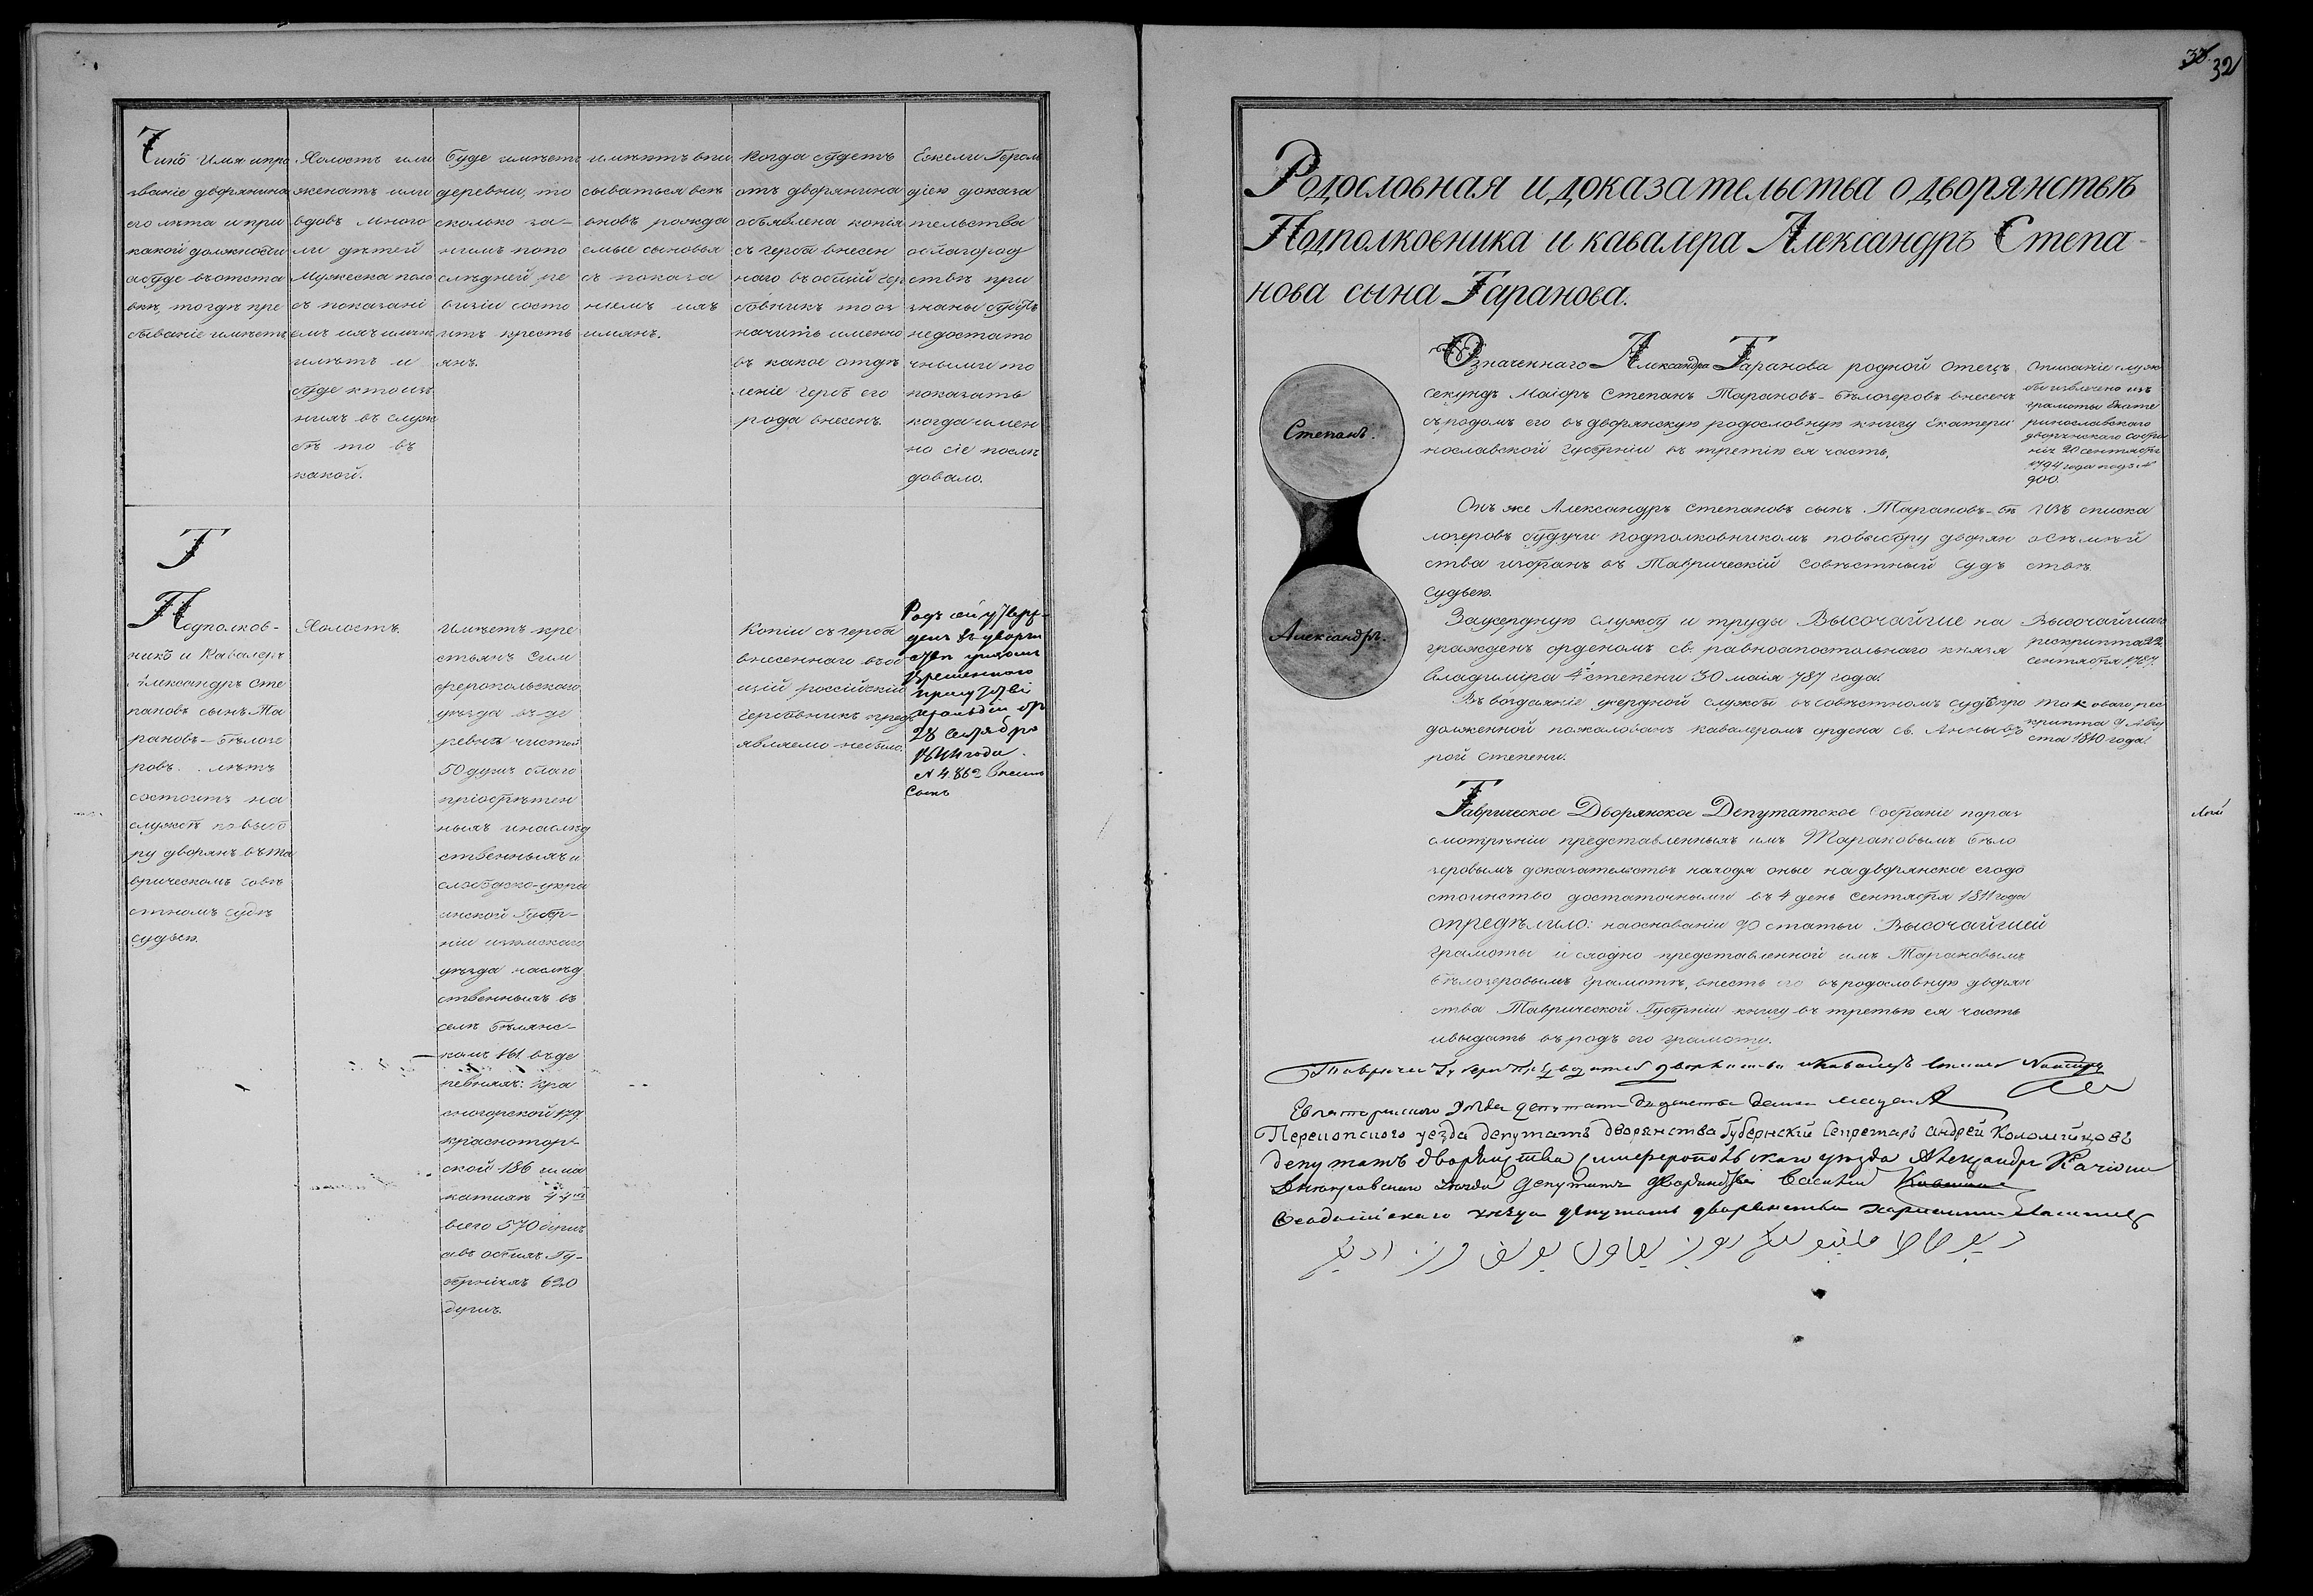 33 32
Чинъ Имя и про
званіе дворянина
его лѣта и при
какой должности
абуде въ отста
вкѣ, то гдѣ пре
бываніе имѣетъ
Холостъ или
женатъ или
вдовъ много
ли дѣтей
Мужеска пола
съ показані
емъ ихъ имянъ
и
буде кто изъ
нихъ въ служ
бѣ то въ
какой.
Буде имѣетъ
деревни, то
сколько за-
нимъ по по
слѣдней ре
визіи состо
итъ кресть
янъ.
имѣютъ впи
сываться всѣ
вновь рожда
емые сыновья
съ показа
ніемъ ихъ
имянъ.
Когда будетъ
отъ дворянина
объявлена копія
съ герба внесен
наго въ общій гер
бовникъ то оз
начить именно
въ какое отдѣ
леніе гербъ его
рода внесенъ.
Ежели Героль
діею доказа
тельства
о благород
ствѣ при
знаны будутъ
недостато
чными то
показать
когда имен
но сіе послѣ
довало.
Т
Подполков-
никъ и Кавалеръ
Александръ Сте
пановъ сынъ Та
рановъ-Бѣлозе
ровъ. . лѣтъ
состоитъ на
службѣ по выбо
ру дворянъ въ Та
врическомъ совѣ
стномъ судѣ
судьею.
Холостъ.
Имѣетъ кре
стьянъ Сим
феропольскаго
уѣзда въ де
ревнѣ чистой
50 душъ благо
пріобрѣтен
ныхъ и наслѣд
ственныхъ и
слободско-укра
инской Губер-
ніи изюмскаго
уѣзда наслѣд
ственныхъ въ
селѣ Бѣлянс-
комъ 161 въ де
ревняхъ: кра
сногорской 179
красноторс-
кой 186
всего 570 душъ
а въ обѣихъ Гу-
берніяхъ 620
душъ.
Копіи съ герба
внесеннаго въ об
щій россійскій
гербовникъ пред
являемо не было.
Родъ сей утверж-
денъ въ дворян
ствѣ указомъ
Временнаго
присутствія
герольдіи отъ
28 сентября
1844 года
N 4.86
Родословная и доказательства о дворянствѣ
Подполковника и кавалера Александръ Степа-
нова сына Таранова.
Степанъ.
Александръ.
Означеннаго Александра Таранова родной отецъ
секундъ Маіоръ Степанъ Тарановъ-Бѣлозеровъ внесенъ
съ родомъ его въ дворянскую родословную книгу Екатери
нославской Губерніи въ третію ея часть.
Описаніе служ
бы извлечено изъ
грамоты Екате
ринославскаго
дворянскаго Собра
нія 20 сентября
1794 года подъ N
900.
Онъ же Александръ Степановъ сынъ Тарановъ-бѣ
лозеровъ будучи подполковникомъ по выбору дворян
ства избранъ въ Таврическій Совѣстный Судъ
Судьею.
Изъ списка
о
ствѣ
За усердную службу и труды Высочайше на
гражденъ орденомъ св. равноапостольнаго князя
Владиміра 4й степени 30 маія 787 года.
Высочайшаго
рескрипта 22
сентября 1787.
Въ воздаяніе усердной службы въ совѣстномъ судѣ про
долженной пожалованъ кавалеромъ ордена св. Анны вто
рой степени.
таковаго рес
крипта 9 Авгу
ста 1810 года.
Таврическое Дворянское Депутатское Собраніе по раз
смотрѣніи представленныхъ имъ Тарановымъ бѣло
зеровымъ доказательствъ находя оные на дворянское его до
стоинство достаточными въ 4 день Сентября 1811 года
опредѣлило: на основаніи 90 статьи Высочайшей
грамоты и сходно представленной имъ Тарановымъ
Бѣлозеровымъ Грамотѣ, внесть его въ родословную дворян
ства Таврической Губерніи книгу въ третью ея часть
и выдать въ родъ его грамоту.
Евпаторійского уѣзда депутатъ
Перекопского уезда депутатъ дворянства Губернскій Секретарь Андрей Коломейцовъ
депутатъ дворянства Симферопольскаго уѣзда Александръ
Днепровского уѣзда депутатъ дворянства Василій
Феодосійскаго уѣзда депутатъ дворянства